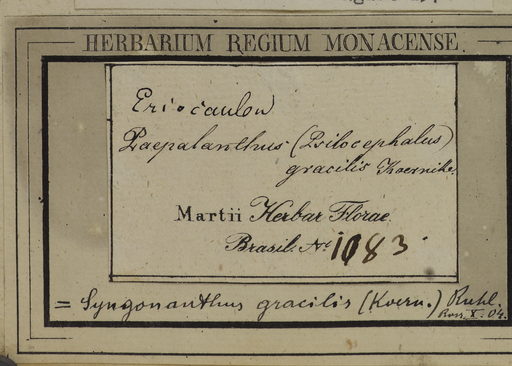 HERBARIUM REGIUM MONACENSE.
Eriocaulon
Paepalanthus (Psilocephalus)
gracilis Koernike.
Martii Herbar Florae
Brasil. No 1083.
= Syngonanthus gracilis (Koern.) Ruhl.
X. 04.